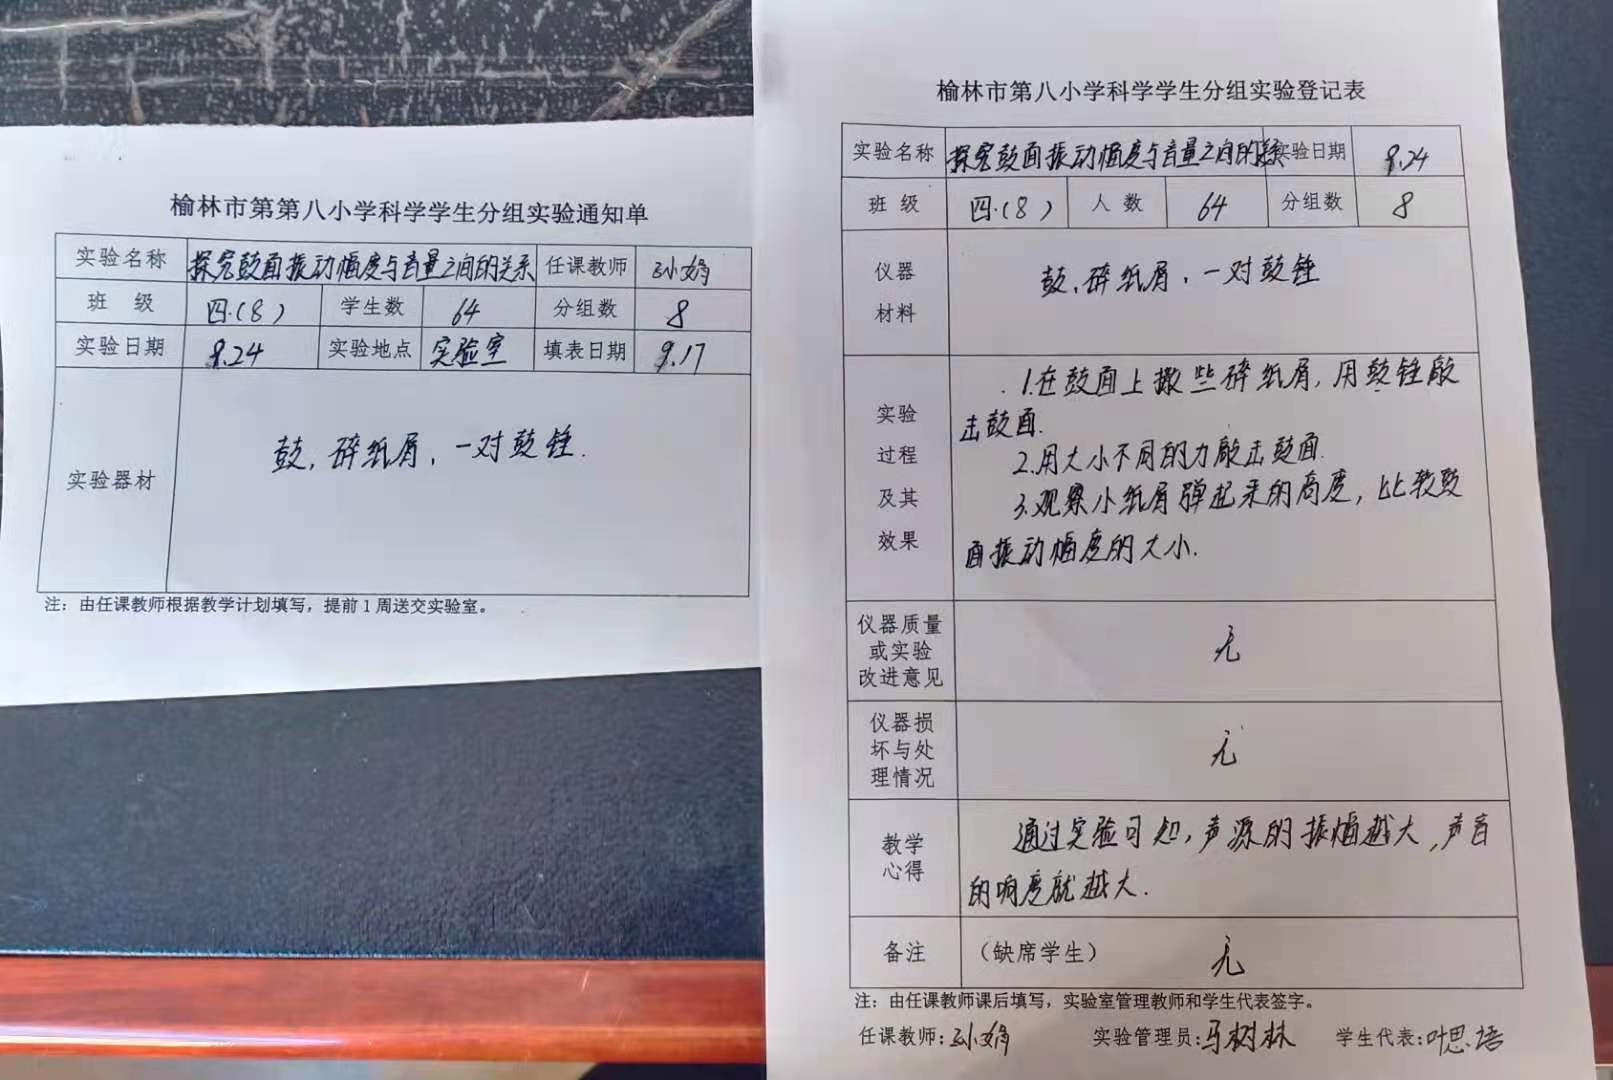 榆林市第第八小学科学学生分组实验通知单
实验名称 探究鼓面振动幅度与音量之间的关系 任课教师 孙娟
班 级 四.(8) 学生数 64 分组数 8
实验日期 9.24 实验地点 实验室 填表日期 9.17
实验器材 鼓,碎纸屑,一对鼓锤.
注：由任课教师根据教学计划填写，提前1周送交实验室。
榆林市第八小学科学学生分组实验登记表
实验名称 探究鼓面振动幅度与音量之间的关系 实验日期 9.24
班 级 四.(8) 人 数 64 分组数 8
仪器
材料
鼓,碎纸屑,一对鼓锤
实验
过程
及其
效果
1.在鼓面上撒些碎纸屑,用鼓锤敲
击鼓面.
2.用大小不同的力敲击鼓面.
3.观察小纸屑弹起来的高度,比较鼓
面振动幅度的大小.
仪器质量
或实验
改进意见
无
仪器损
坏与处
理情况
无
教学
心得
通过实验可知,声源的振幅越大,声音
的响度就越大.
备注 （缺席学生） 无
注：由任课教师课后填写，实验室管理教师和学生代表签字。
任课教师:孙娟 实验管理员:马树林 学生代表:叶思语